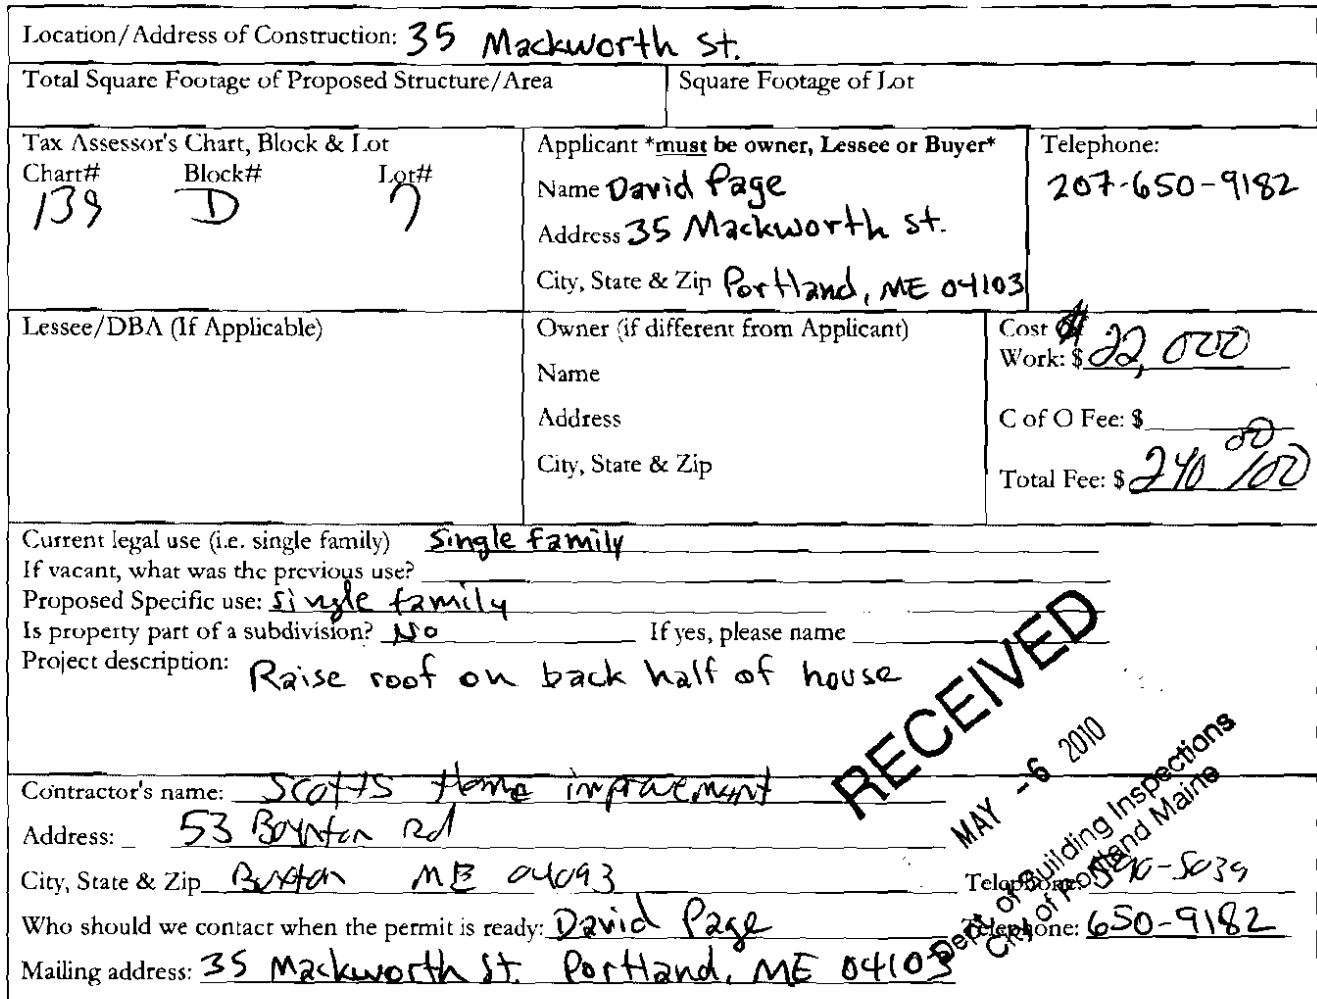 Location/Address of Construction: 35 Mackworth St.
Total Square Footage of Proposed Structure/Area Square Footage of Lot
Tax Assessor's Chart, Block & Lot
Chart# Block# Lot#
139 D 7
Applicant *must be owner, Lessee or Buyer*
Name David Page
Address 35 Mackworth St.
City, State & Zip Portland, ME 04103
Telephone:
207-650-9182
Lessee/DBA (If Applicable)
Owner (if different from Applicant)
Name
Address
City, State & Zip
Cost Of
Work: $ 22,000
C of O Fee: $
Total Fee: $ 240 00/00
Current legal use (i.e. single family) Single family
If vacant, what was the previous use?
Proposed Specific use: single family
Is property part of a subdivision? No If yes, please name
Project description: Raise roof on back half of house
RECEIVED
MAY -6 2010
Dept. of Building Inspections
City of Portland Maine
Contractor's name: Scotts Home improvement
Address: 53 Boynton Rd
City, State & Zip Buxton ME 04093 Telephone: -5039
Who should we contact when the permit is ready: David Page Telephone: 650-9182
Mailing address: 35 Mackworth St. Portland, ME 04103